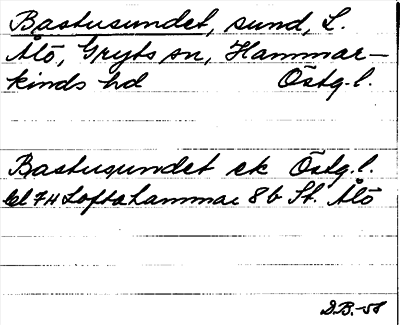 Bastusundet, sund, L.
Ålö, Gryts sn, Hammar-
kinds hd Östg.l.
Bastusundet ek Östg.l.
bl 74 Loftahammar 8b St. Ålö
D.B.-58